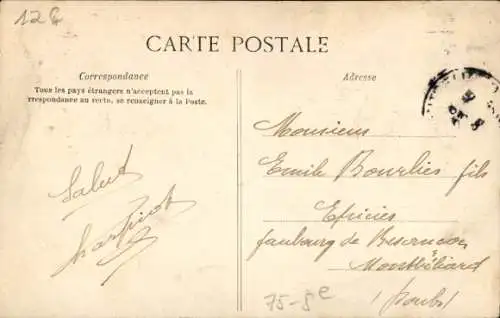 12€
CARTE POSTALE
Correspondance
Tous les pays étrangers n'acceptent pas la
rrespondance au recto, se renseigner à la Poste.
Adresse
Salut
Monsieur
Emile Bourlies fils
Epicier
faubourg de Besancon
Montbéliard
(Doubs)
75-5e